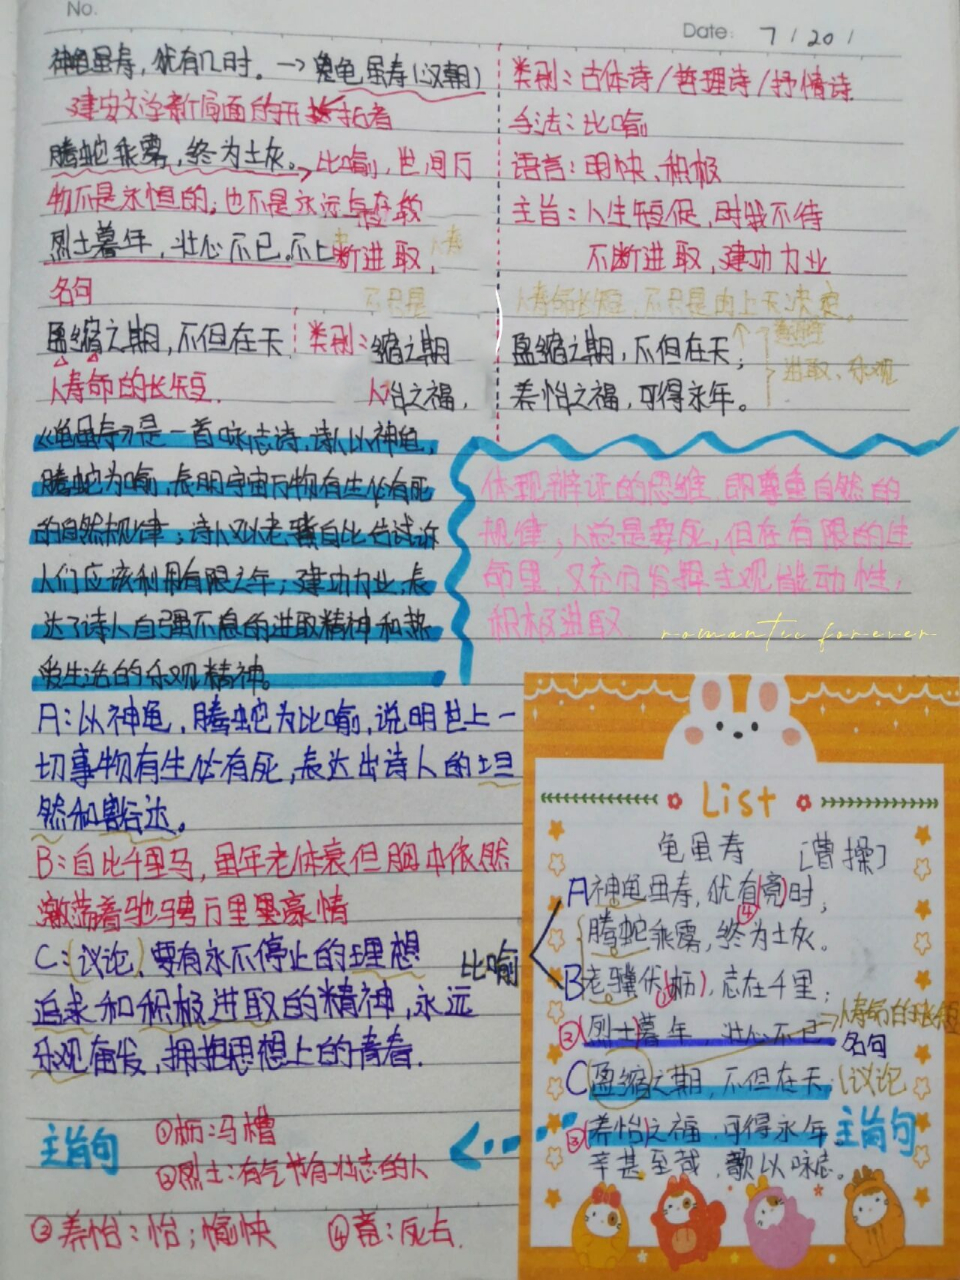 No.
Date: 7 / 20 /
神龟虽寿，犹有几时。→龟虽寿(汉朝)
建安文学新局面的开拓者
腾蛇乘雾，终为土灰。→比喻，世间万
物不是永恒的，也不是永远存在
烈士暮年，壮心不已。不断进取，
名句
盈缩之期，不但在天
类别：缩之期
人寿命的长短.
怡之福，
类别：古体诗/哲理诗/抒情诗
手法：比喻
语言：明快、积极
主旨：人生短促，时我不待
不断进取，建功力业
人寿命长短，不只是由上天决定，
盈缩之期，不但在天；
养怡之福，可得永年。
进取、乐观
《龟虽寿》是一首咏志诗，诗人以神龟，
腾蛇为喻，表明宇宙万物有生必有死
的自然规律；诗人又以老骥自比告诉
人们应该利用有限之年；建功力业，表
达了诗人自强不息的进取精神和热
爱生活的乐观精神。
体现辩证的思维，即尊重自然的
规律，人总是要死，但在有限的生
命里，又充分发挥主观能动性，
积极进取.
romantic forever
A：以神龟，腾蛇为比喻，说明世上一
切事物有生必有死，表达出诗人的坦
然和豁达。
B：自比千里马，虽年老体衰但胸中依然
激荡着驰骋万里豪情
C：议论，要有永不停止的理想
追求和积极进取的精神，永远
乐观奋发，拥抱思想上的青春.
比喻
主旨句
①枥：马槽
②烈士：有气节有壮志的人
③养怡：怡；愉快
④竟：死去.
List
龟虽寿 [曹操]
A神龟虽寿，犹有(竟)时，
④
腾蛇乘雾，终为土灰。
B老骥伏(枥)，志在千里；
①
②(烈士)暮年，壮心不已
→人寿命的长短
名句
C盈缩之期，不但在天
议论
③(养怡)之福，可得永年
主旨句
幸甚至哉，歌以咏志。